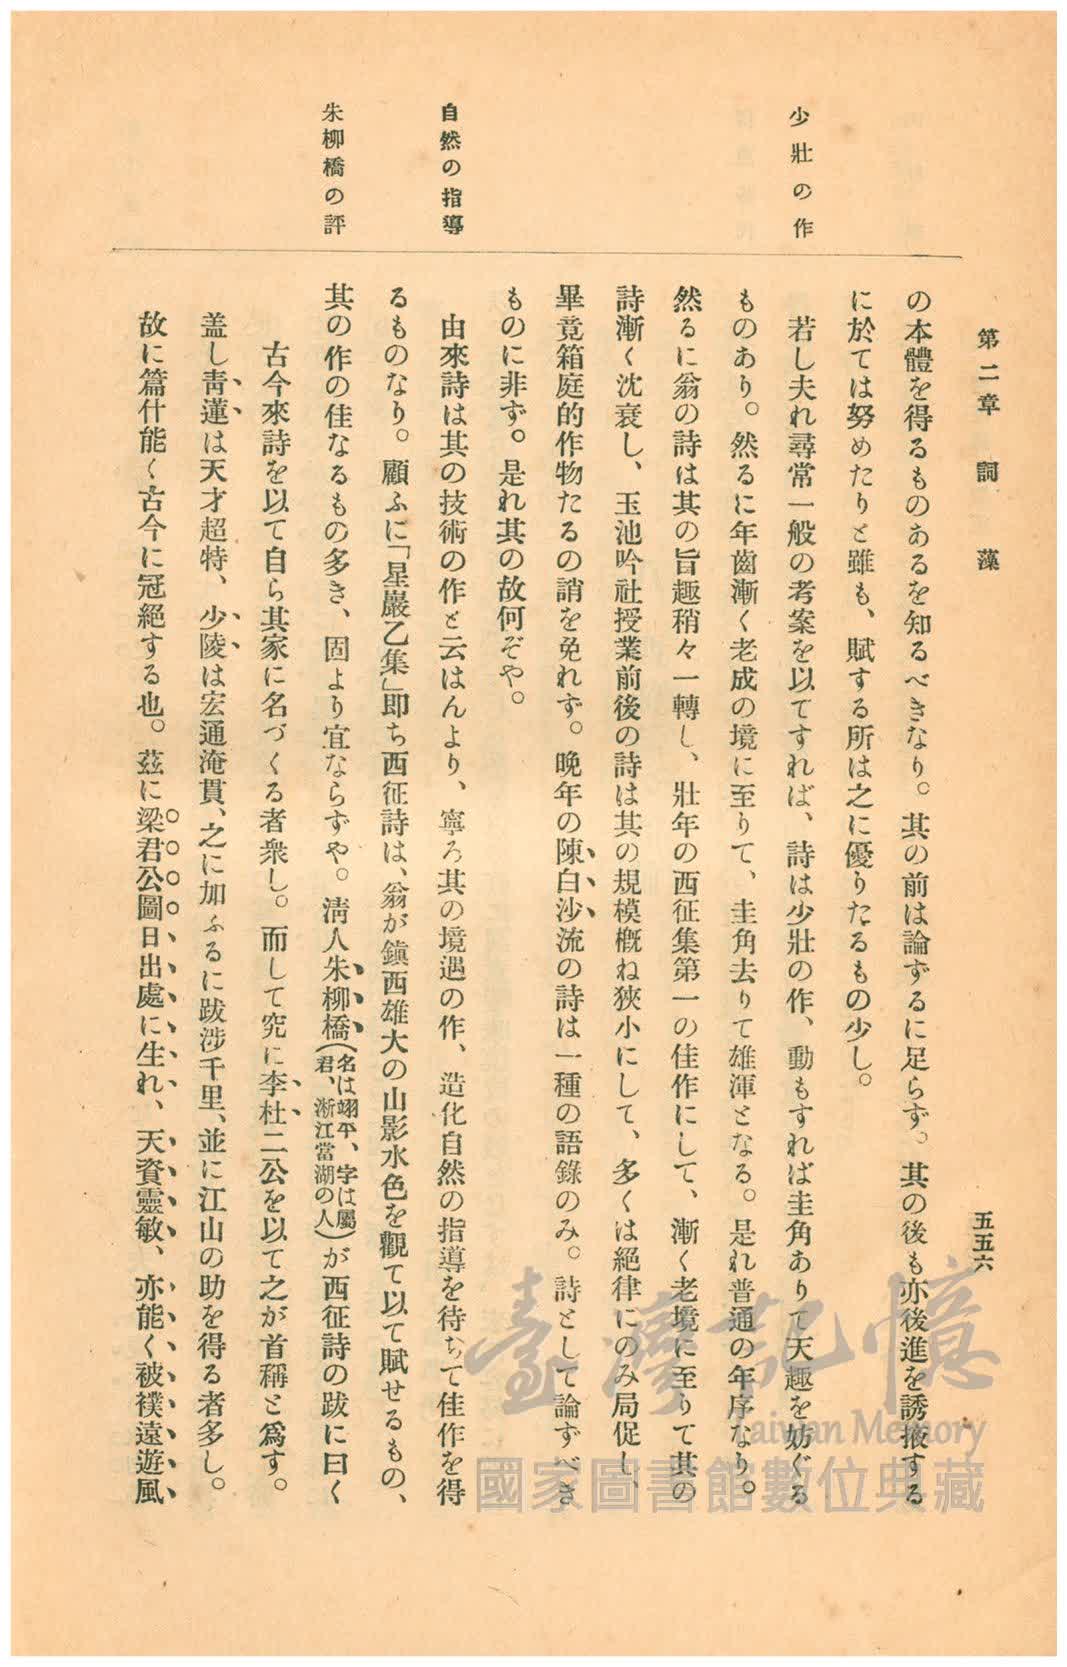 第二章　詞藻
五五六
の本體を得るものあるを知るべきなり。其の前は論ずるに足らず。其の後も亦後進を誘掖する
に於ては努めたりと雖も、賦する所は之に優りたるもの少し。
少壯の作
若し夫れ尋常一般の考案を以てすれば、詩は少壯の作、動もすれば圭角ありて天趣を妨ぐる
ものあり。然るに年齒漸く老成の境に至りて、圭角去りて雄渾となる。是れ普通の年序なり。
然るに翁の詩は其の旨趣稍々一轉し、壯年の西征集第一の佳作にして、漸く老境に至りて其の
詩漸く沈衰し、玉池吟社授業前後の詩は其の規模概ね狹小にして、多くは絕律にのみ局促し、
畢竟箱庭的作物たるの誚を免れず。晚年の陳白沙流の詩は一種の語錄のみ。詩として論ずべき
ものに非ず。是れ其の故何ぞや。
自然の指導
由來詩は其の技術の作と云はんより、寧ろ其の境遇の作、造化自然の指導を待ちて佳作を得
るものなり。顧ふに「星巖乙集」卽ち西征詩は、翁が鎭西雄大の山影水色を觀て以て賦せるもの、
朱柳橋の評
其の作の佳なるもの多き、固より宜ならずや。淸人朱柳橋(名は翊平、字は屬君、漸江當湖の人)が西征詩の跋に曰く
古今來詩を以て自ら其家に名づくる者衆し。而して究に李杜二公を以て之が首稱と爲す。
盖し靑蓮は天才超特、少陵は宏通淹貫、之に加ふるに跋涉千里、並に江山の助を得る者多し。
故に篇什能く古今に冠絕する也。茲に梁君公圖日出處に生れ、天資靈敏、亦能く被襆遠遊風
臺灣記憶
Taiwan Memory
國家圖書館數位典藏